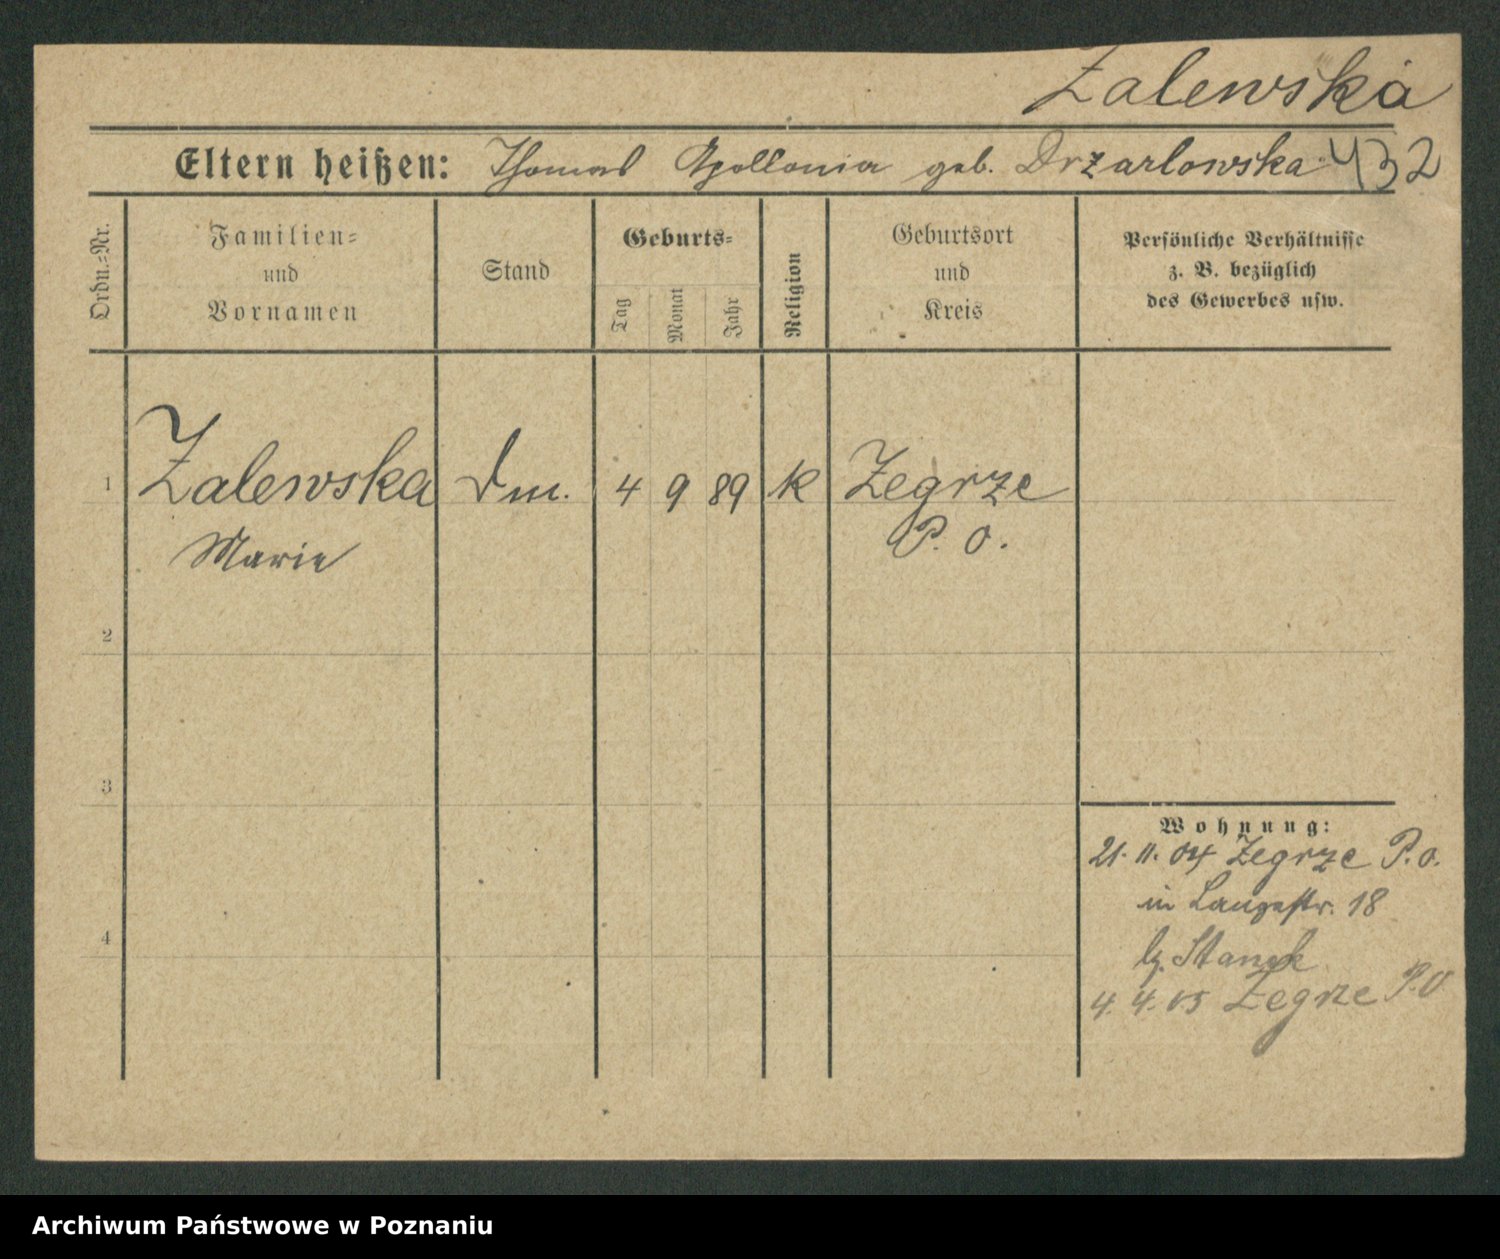 Zalewska
Eltern heißen: Thomas Apollonia geb. Drzarlowska 432
Ordn.=Nr.
Familien=
und
Vornamen
Stand
Geburts=
Tag
Monat
Jahr
Religion
Geburtsort
und
Kreis
Persönliche Verhältnisse
z. B. bezüglich
des Gewerbes usw.
1 Zalewska Dm. 4 9 89 K Zegrze
Marie P. O.
2
3
4
Wohnung:
21. 11. 04 Zegrze P. O.
in Langestr. 18
b. Stanek
4. 4. 05 Zegrze P. O
Archiwum Państwowe w Poznaniu